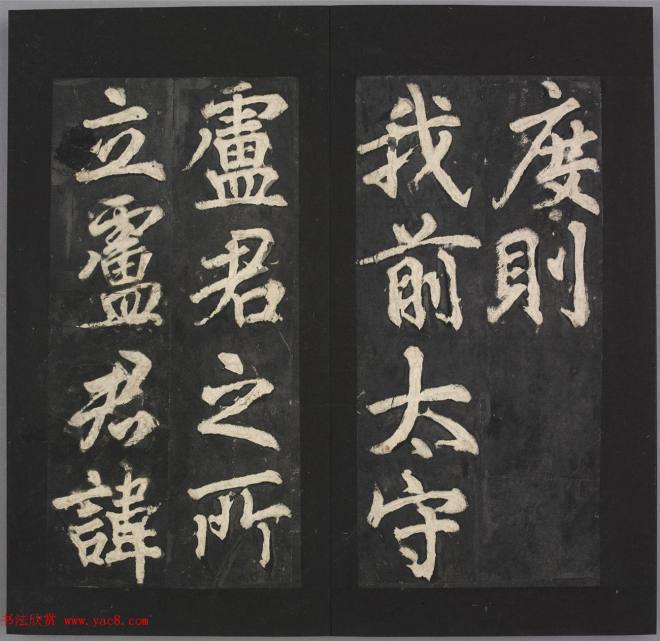 度則
我前太守
盧君之所
立盧君諱
书法欣赏 www.yac8.com